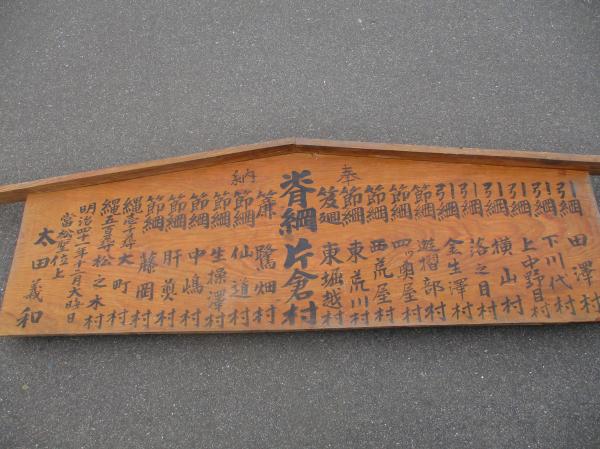 奉
納
引綱 田澤村
引綱 下川代村
引綱 上中野目村
引綱 横山村
引綱 落之目村
引綱 金生澤村
節綱 遊摺部村
節綱 四ツ興屋村
節綱 西荒屋村
節綱 東荒川村
笈廻 東堀越村
脊綱 片倉村
簾 鷺畑村
節綱 仙道村
節綱 生操澤村
節綱 中嶋村
節綱 肝煎村
節綱 藤岡村
縄壱千尋 大町村
縄五百尋 松之木村
明治四十一年十二月大晦日
當松聖位上
太田義和